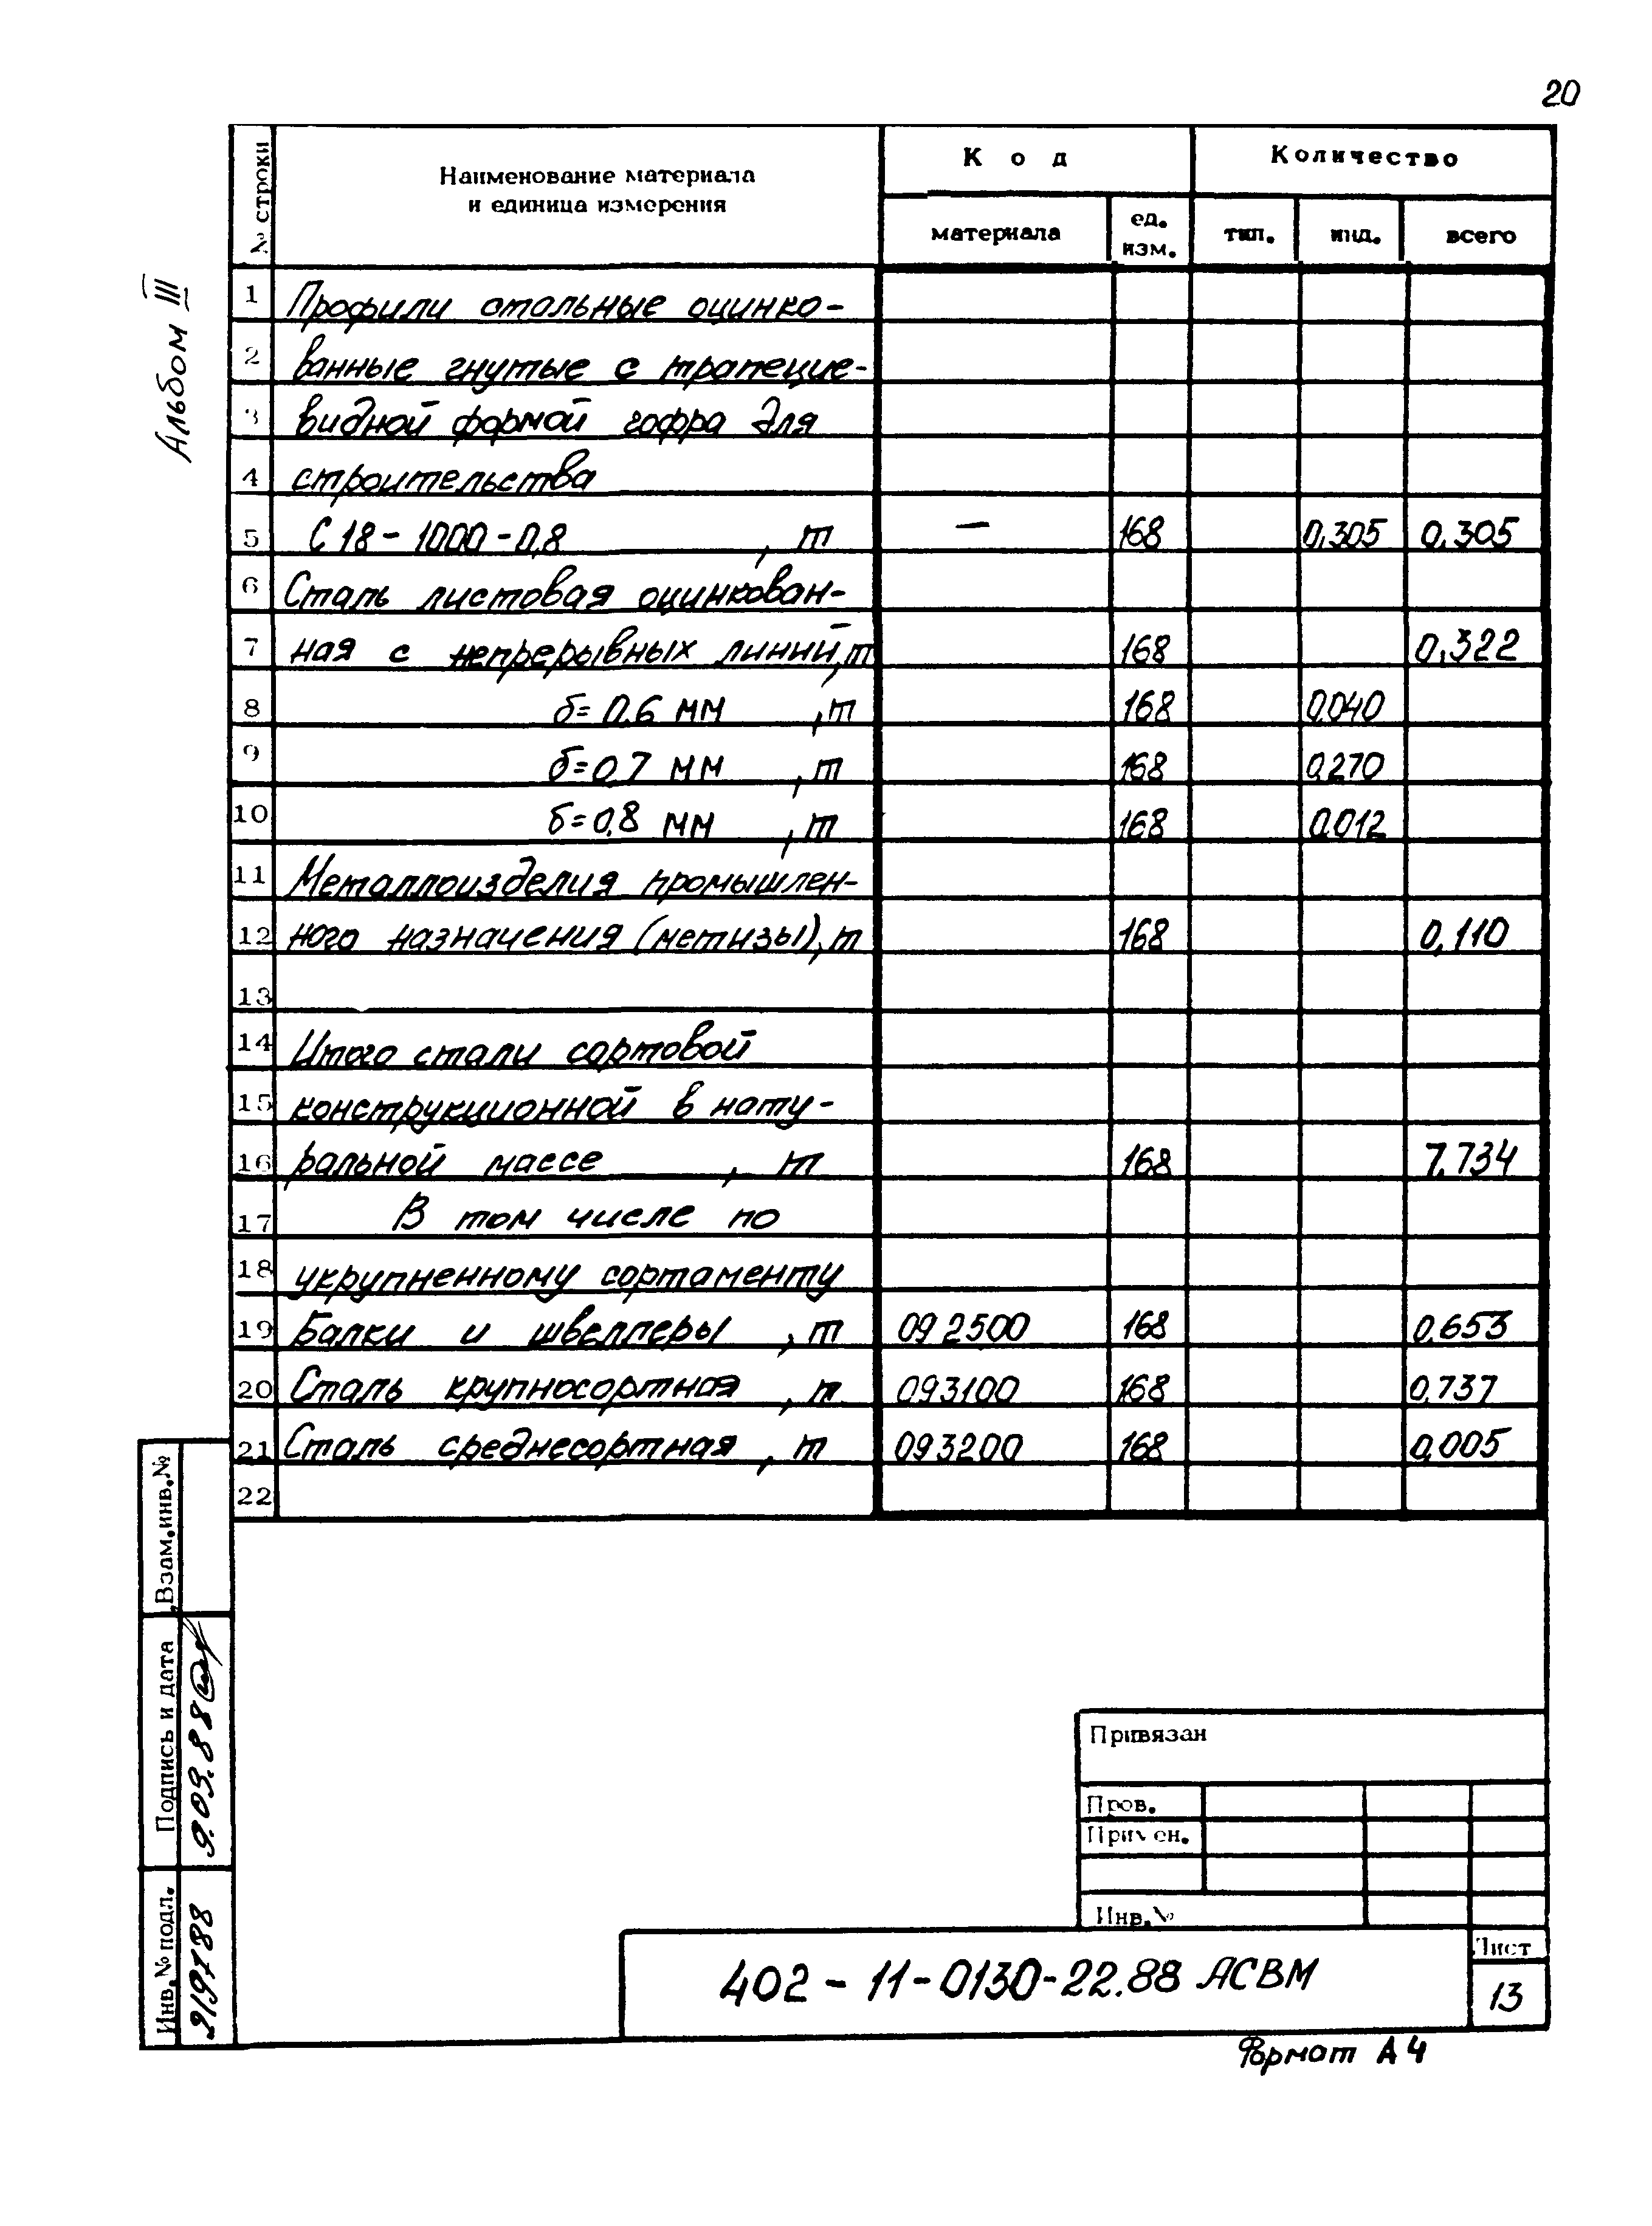 20
Альбом III
№ строки
Наименование материала
и единица измерения
Код
Количество
материала
ед.
изм.
тип.
инд.
всего
1 Профили стальные оцинко-
2 ванные гнутые с трапецие-
3 видной формой гофра для
4 строительства
5 С18-1000-0,8 , т — 168 0,305 0,305
6 Сталь листовая оцинкован-
7 ная с непрерывных линий, т 168 0,322
8 б=0,6 мм , т 168 0,040
9 б=0,7 мм , т 168 0,270
10 б=0,8 мм , т 168 0,012
11 Металлоизделия промышлен-
12 ного назначения (метизы), т 168 0,110
13
14 Итого стали сортовой
15 конструкционной в нату-
16 ральной массе , т 168 7,734
17 В том числе по
18 укрупненному сортаменту
19 Балки и швеллеры , т 092500 168 0,653
20 Сталь крупносортная , т 093100 168 0,737
21 Сталь среднесортная , т 093200 168 0,005
22
Взам.инв.№
Подпись и дата
9.09.88
Инв.№ подл.
Привязан
Пров.
Примен.
Инв.№
402-11-0130-22.88 АСВМ
Лист
13
Формат А4